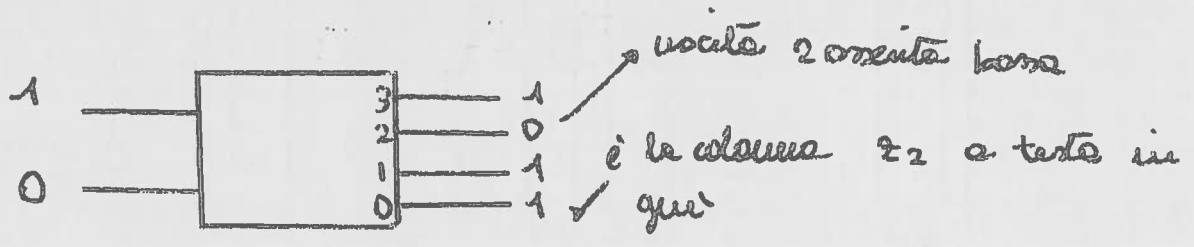 1
0
3 1
2 0
1 1
0 1
uscita 2 asserita bassa
è la colonna z2 a testa in
giù